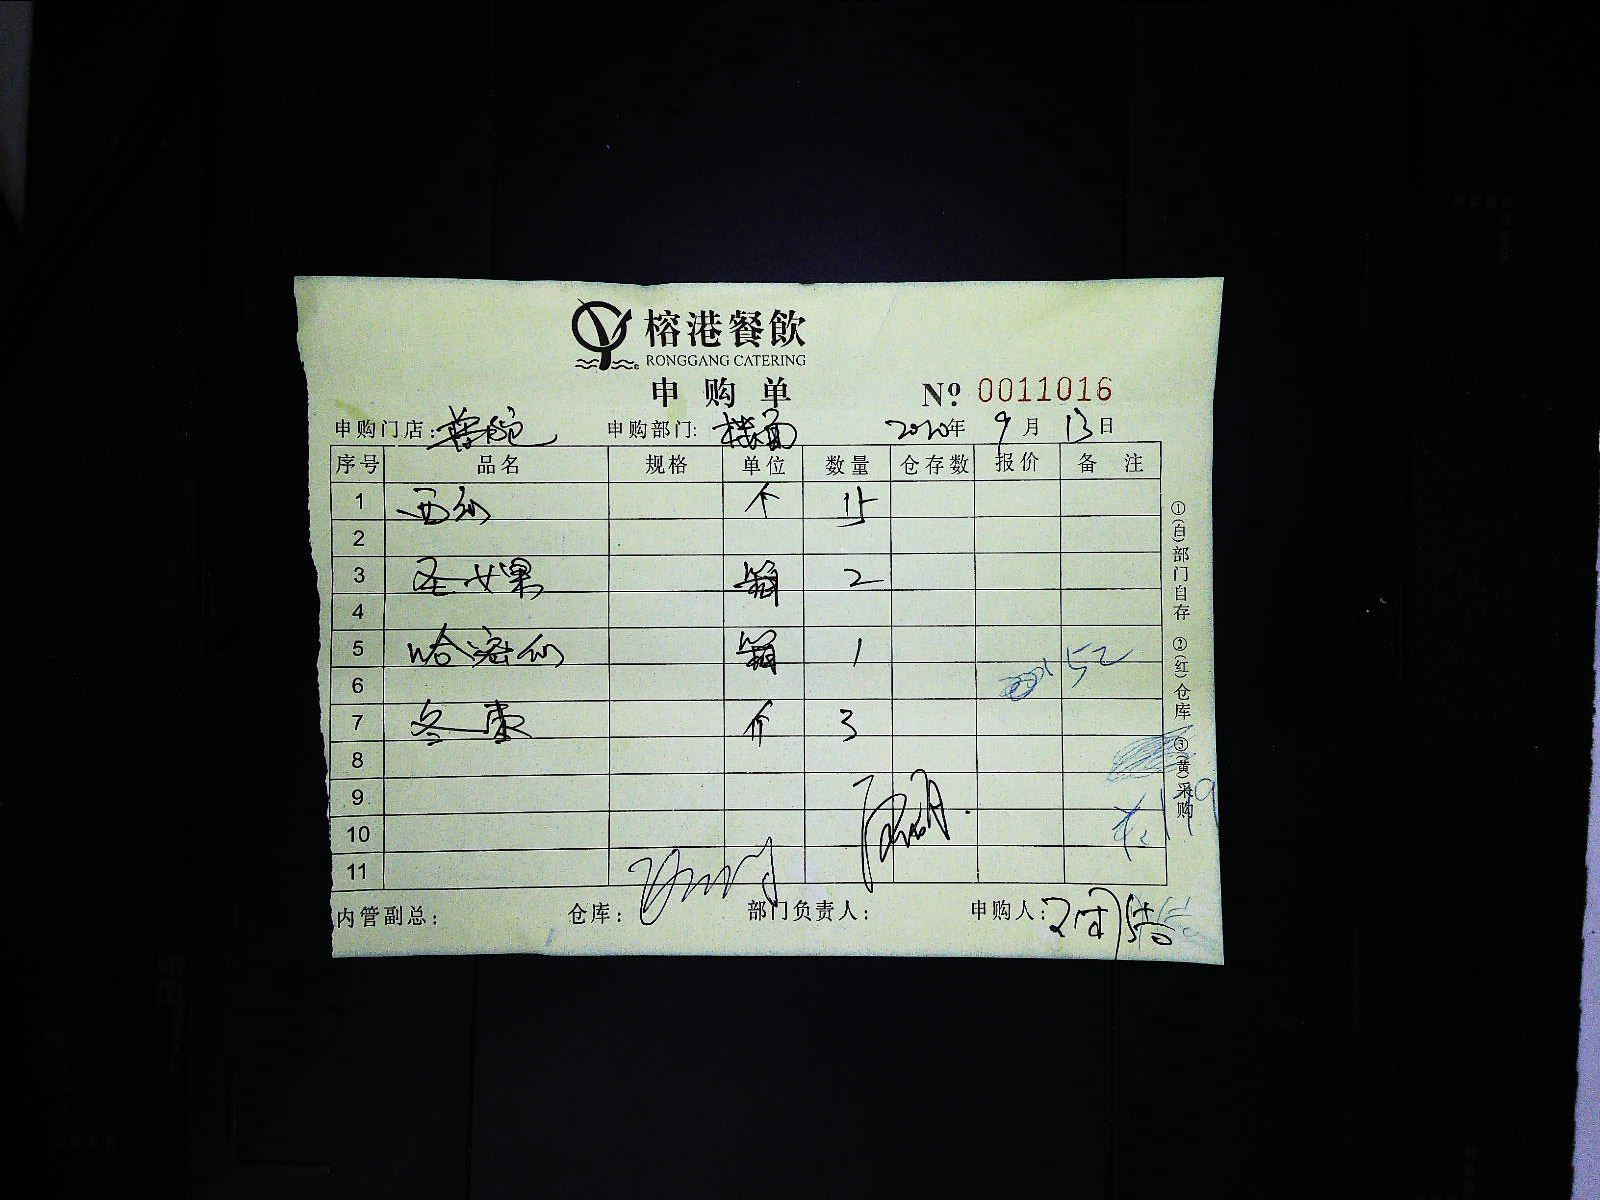 榕港餐飲
RONGGANG CATERING
申购单
Nº 0011016
申购门店: 申购部门: 楼面 2020年 9月 13日
序号 品名 规格 单位 数量 仓存数 报价 备注
1 西瓜 个 15
2
3 圣女果 箱 2
4
5 哈密瓜 箱 1
6 52
7 冬枣 斤 3
8
9
10
11
内管副总: 仓库: 部门负责人: 申购人:
①(白)部门自存 ②(红)仓库 ③(黄)采购